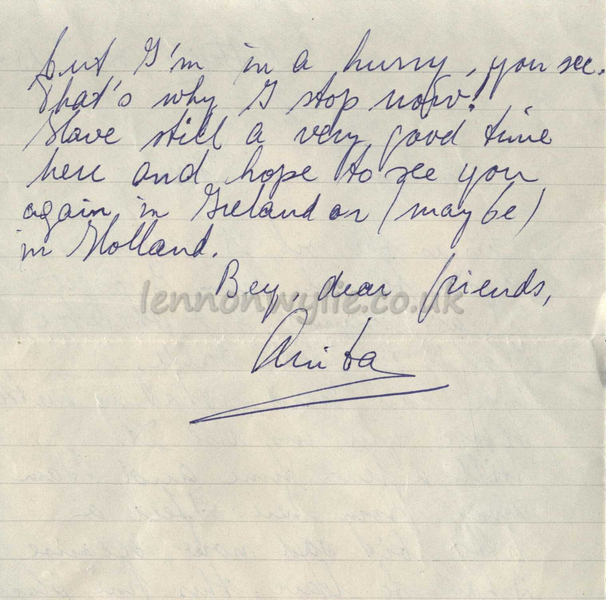 but I'm in a hurry, you see.
That's why I stop now!
Have still a very good time
here and hope to see you
again in Ireland or (maybe)
in Holland.
Bey, dear friends,
lennonwylie.co.uk
Anita